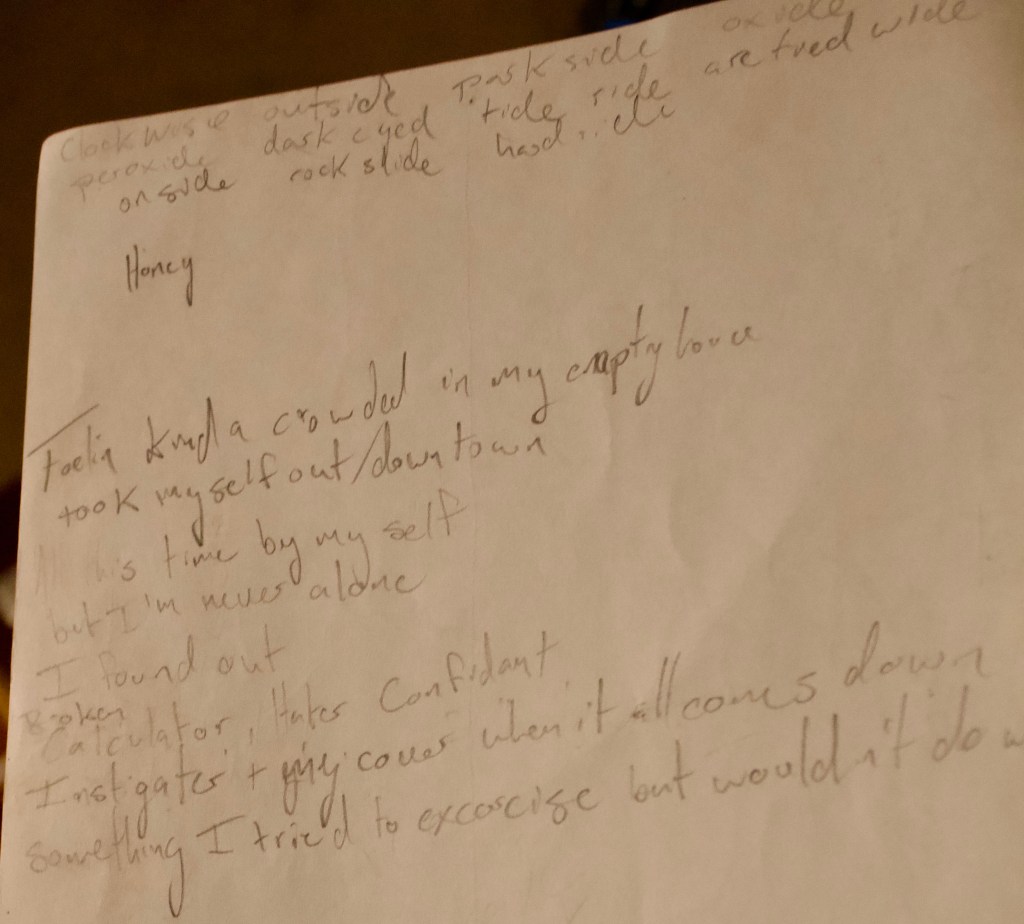 Clockwise outside Parkside oxide
peroxide dark eyed tide ride are tued wide
onside rock slide hard
Honey
Feelin kinda crowded in my empty house
took myself out/downtown
his time by my self
but I'm never alone
I found out
Broken
Calculator, Hates Confidant
Instigates + my cover when it all comes down
something I tried to excorcise but wouldn't do